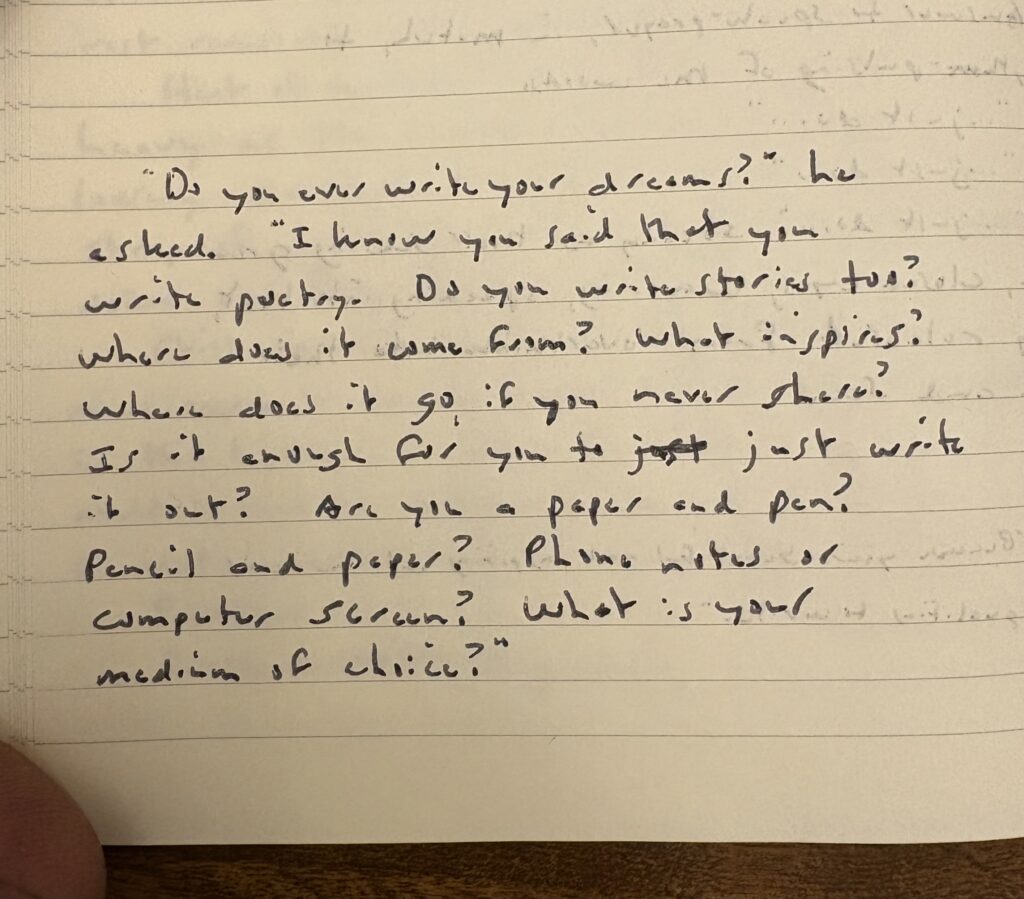 "Do you ever write your dreams?" he
asked. "I know you said that you
write poetry. Do you write stories too?
Where does it come from? What inspires?
Where does it go, if you never share?
Is it enough for you to just just write
it out? Are you a paper and pen?
Pencil and paper? Phone notes or
computer screen? What is your
medium of choice?"